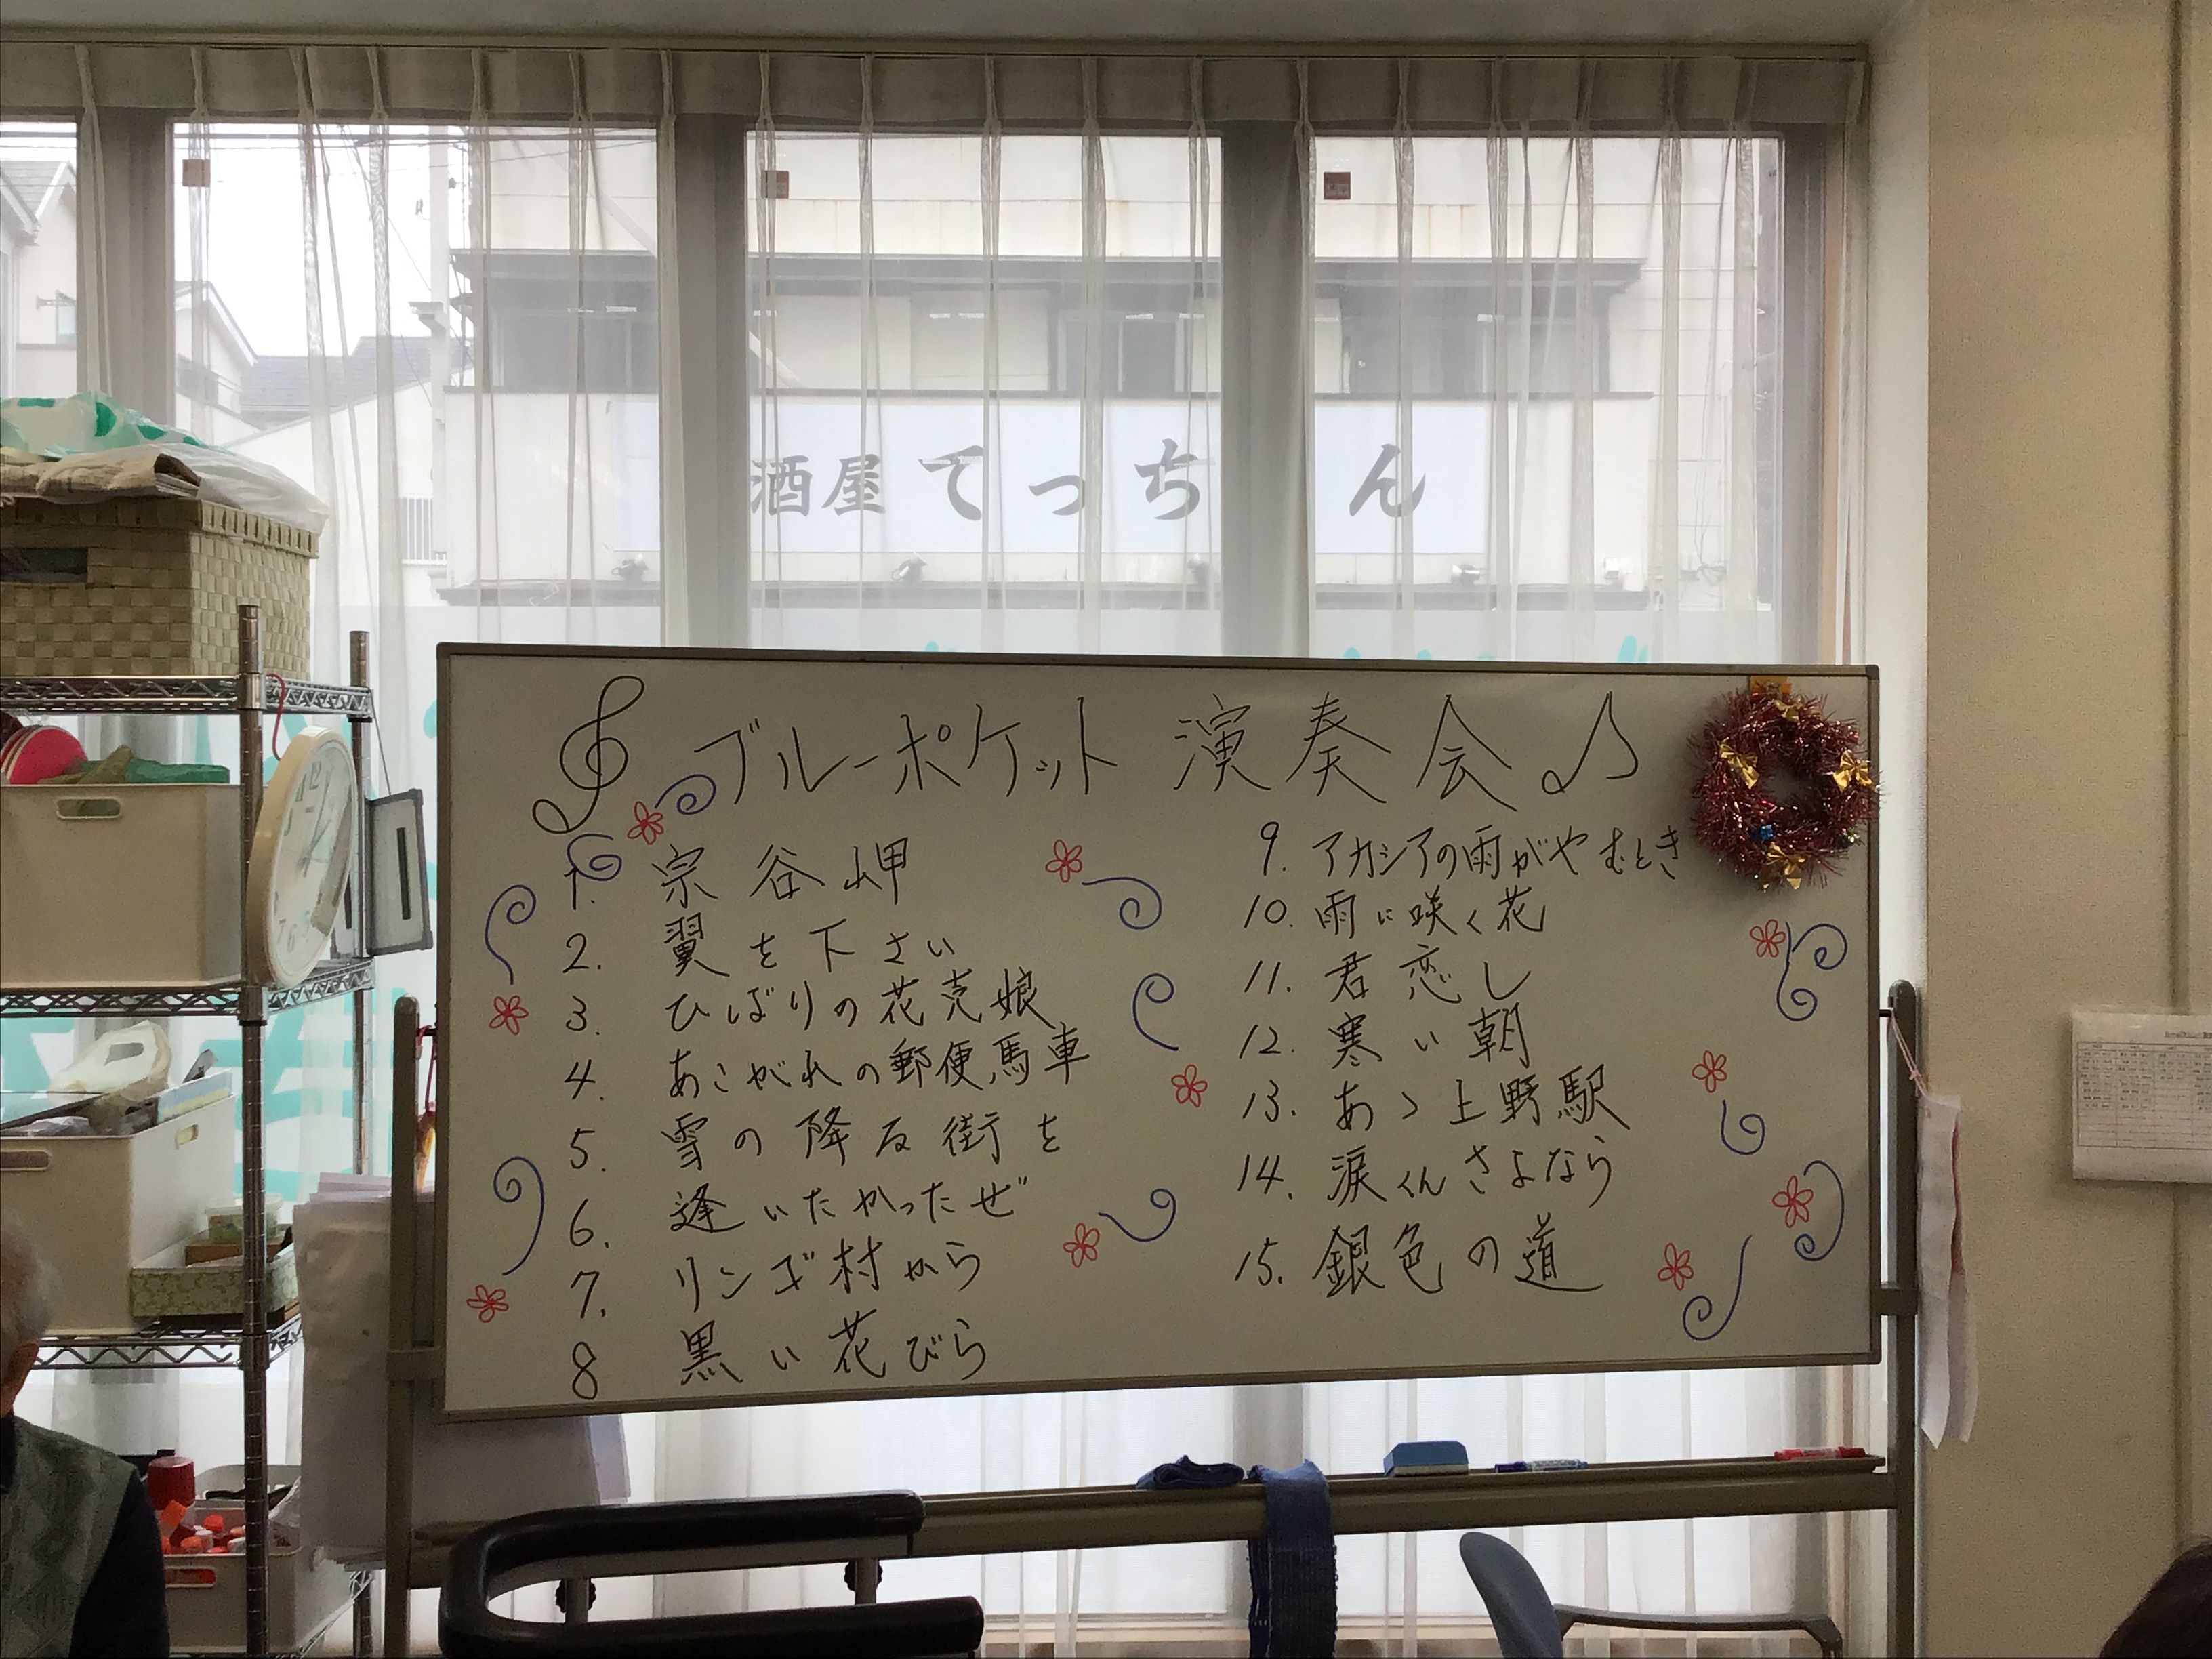 酒屋 てっちゃん
ブルーポケット 演奏会
1. 宗谷岬
2. 翼を下さい
3. ひばりの花売娘
4. あこがれの郵便馬車
5. 雪の降る街を
6. 逢いたかったぜ
7. リンゴ村から
8 黒い花びら
9. アカシアの雨がやむとき
10. 雨に咲く花
11. 君恋し
12. 寒い朝
13. あゝ上野駅
14. 涙くんさよなら
15. 銀色の道